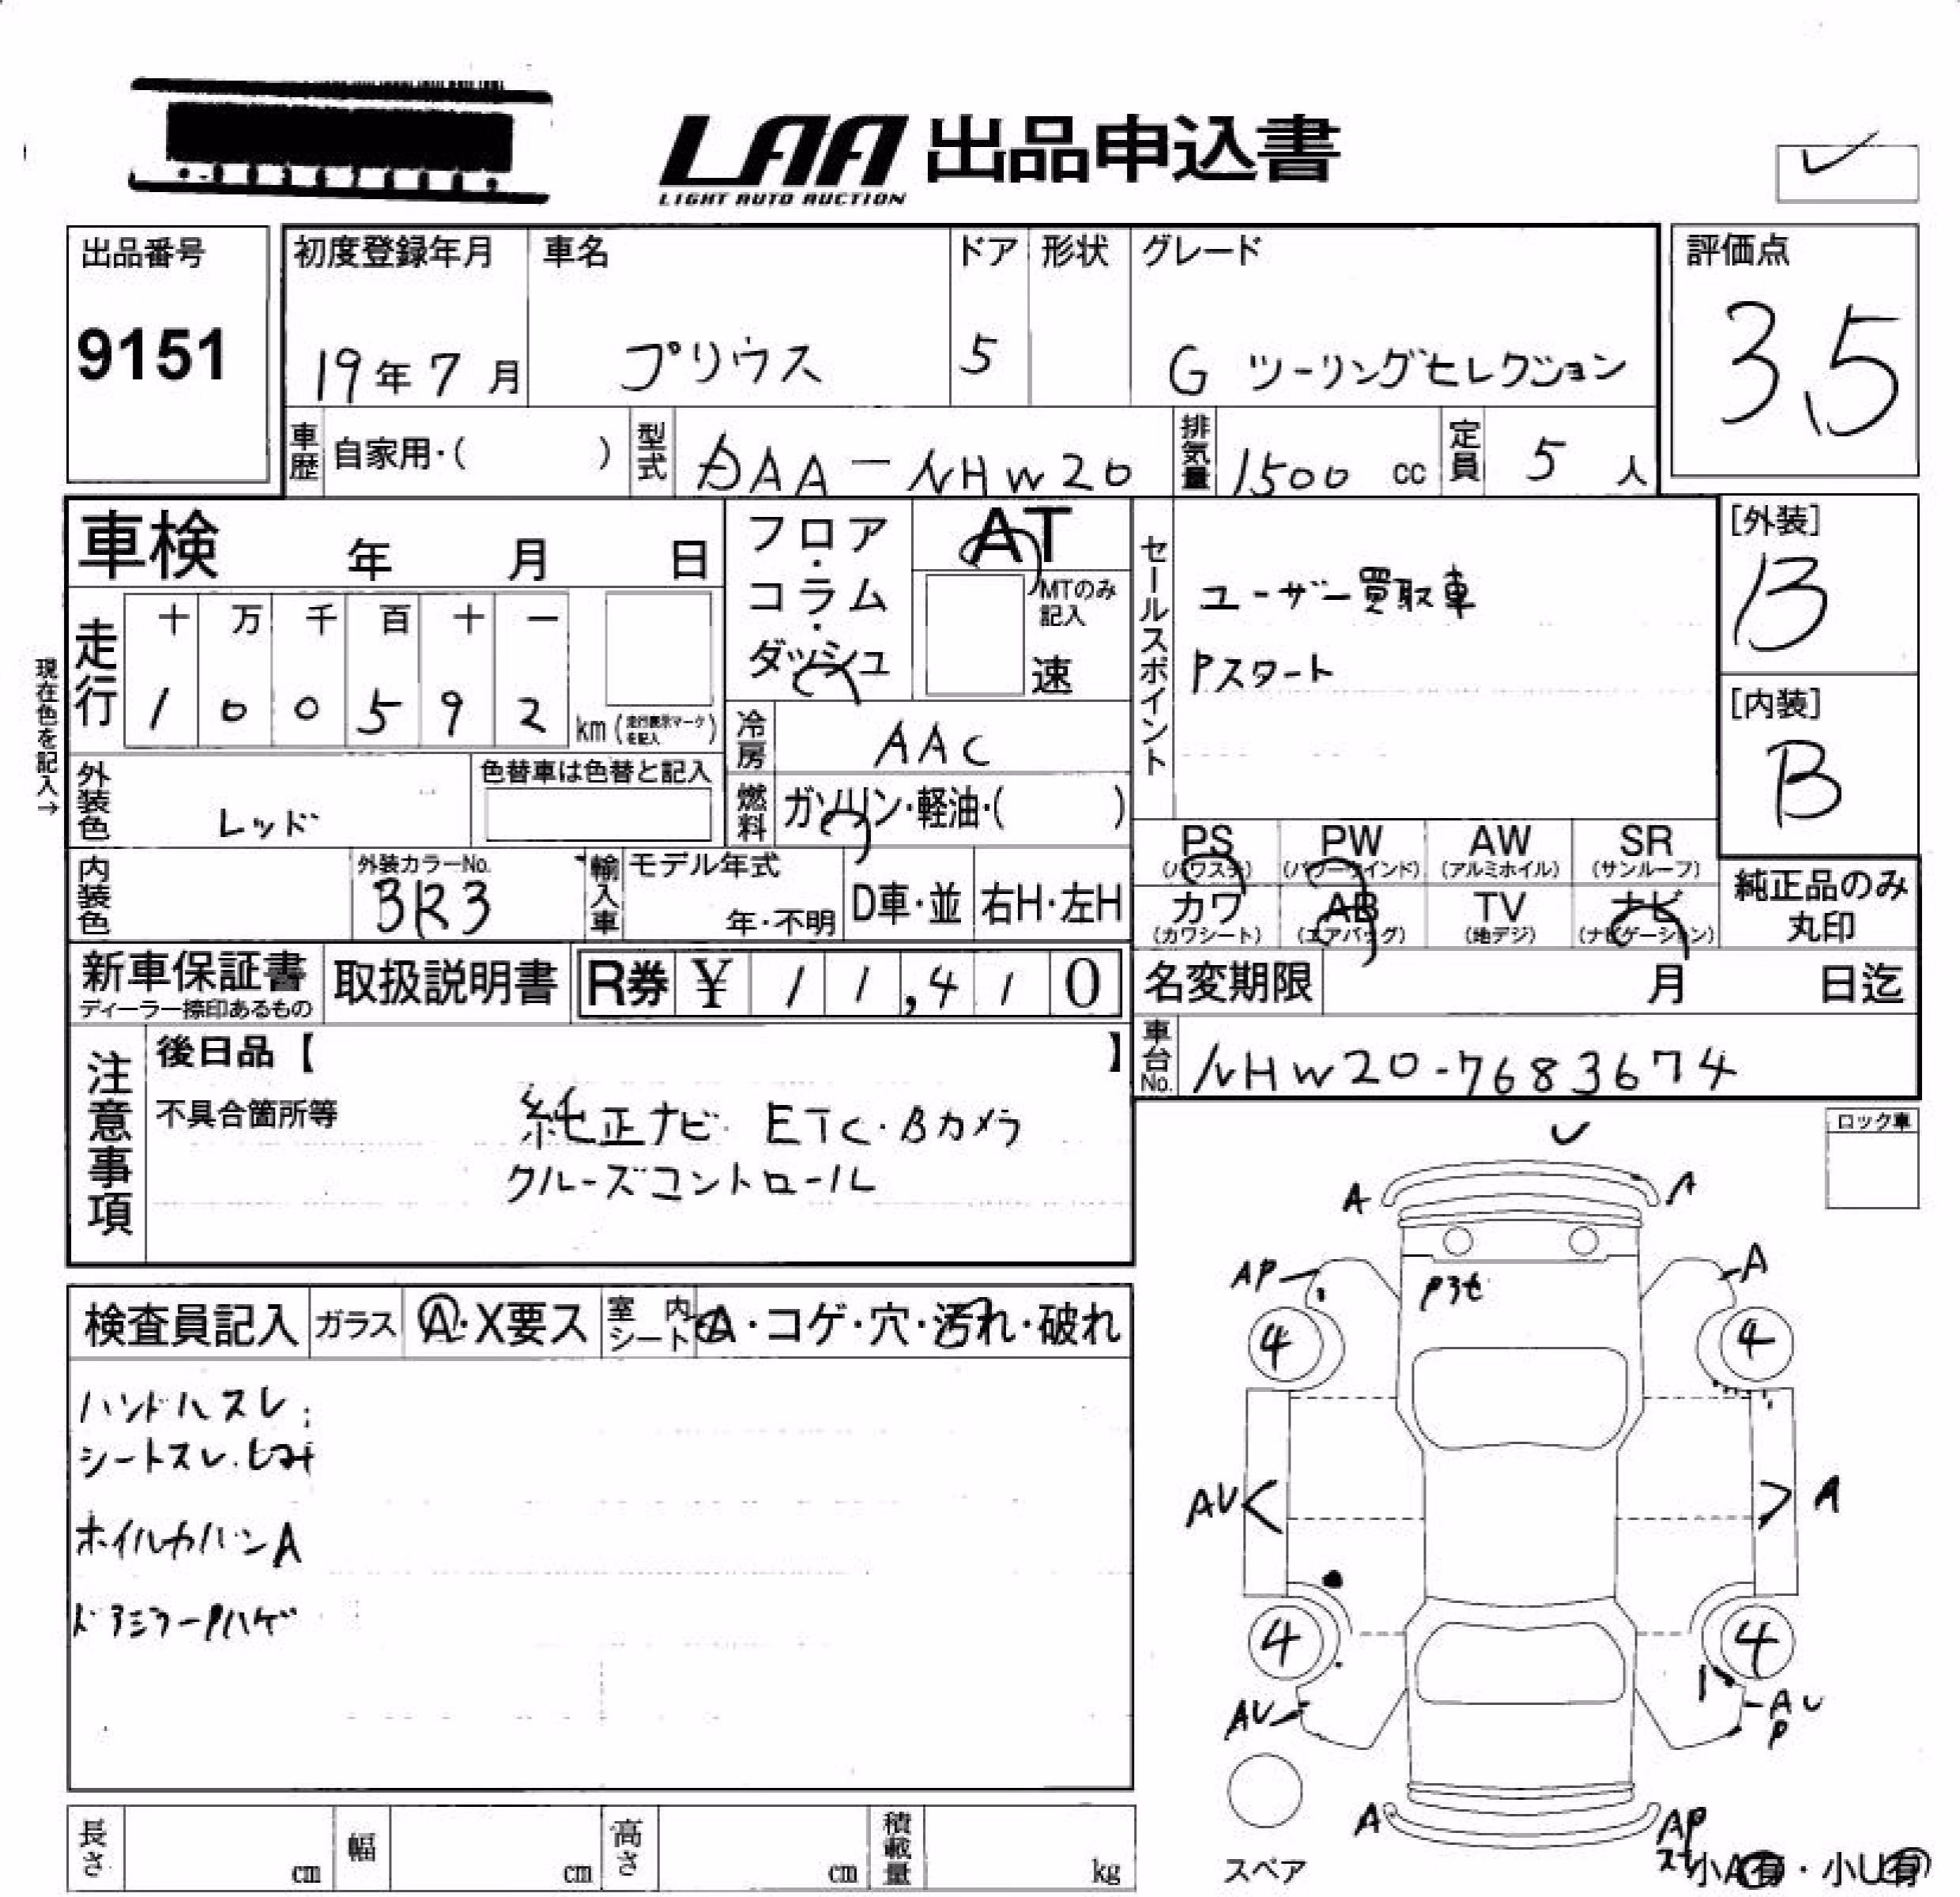 LAA 出品申込書
LIGHT AUTO AUCTION
出品番号
9151
初度登録年月
19年7月
車名
プリウス
ドア
5
形状
グレード
G ツーリングセレクション
評価点
3.5
車歴 自家用・( )
型式 DAA-NHW20
排気量 1500 cc
定員 5 人
車検 年 月 日
フロア・コラム・ダッシュ
AT
MTのみ記入
速
セールスポイント
ユーザー買取車
Pスタート
[外装]
B
[内装]
B
現在色を記入→
走行
十 万 千 百 十 一
1 0 0 5 9 2
km (走行表示マークを記入)
冷房 AAC
燃料 ガソリン・軽油・( )
外装色 レッド
色替車は色替と記入
内装色
外装カラーNo.
3R3
輸入車
モデル年式
年・不明
D車・並
右H・左H
PS (パワステ)
PW (パワーウインド)
AW (アルミホイル)
SR (サンルーフ)
カワ (カワシート)
AB (エアバッグ)
TV (地デジ)
ナビ (ナビゲーション)
純正品のみ丸印
新車保証書
ディーラー捺印あるもの
取扱説明書
R券 ¥ 11,410
名変期限 月 日迄
車台No. NHW20-7683674
注意事項
後日品【 】
不具合箇所等
純正ナビ ETC・Bカメラ
クルーズコントロール
ロック車
検査員記入
ガラス Ⓐ・X要ス
室内シート A・コゲ・穴・汚れ・破れ
ハンドルスレ
シートスレ・ヒヨミ
ホイルカバンA
ドアミラーPハゲ
A A
AP A
Pヨセ
4 4
AU A
4 4
AU AU
P
A AP
スペア
小A有・小U有
長さ cm
幅 cm
高さ cm
積載量 kg